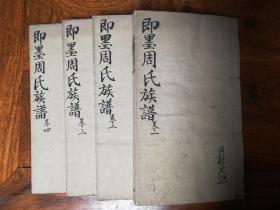 即墨周氏族譜 卷一
即墨周氏族譜 卷二
即墨周氏族譜 卷三
即墨周氏族譜 卷四